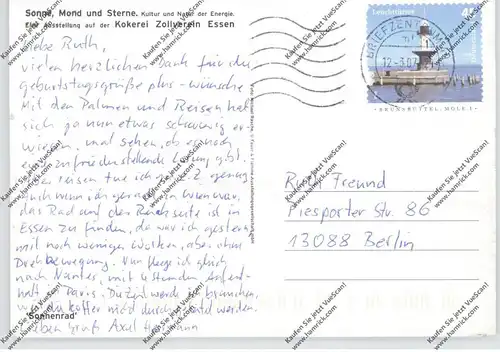 Sonne, Mond und Sterne. Kultur und Natur der Energie.
Eine Ausstellung auf der Kokerei Zollverein Essen
Liebe Ruth,
vielen herzlichen Dank für die
Geburtstagsgrüße plus -wünsche
Mit den Palmen und Reisen hat
sich ja nun etwas schwierig er-
wiesen, und sehen, ob es noch
eine zufriedenstellende Lösung gibt.
reisen tue ich z.Z. genug
auch wenn ich gerade in
das Rad auf der Rückseite ist in
Essen zu finden, da war ich gestern
mit noch weniger Wolken, aber ohne
Drehbewegung. Nun fliege ich gleich
nach Nantes, mit 4 Stunden Aufent-
halt in Paris. Die Zeit werde ich brauchen,
werden
lieben Gruß Axel
"Sonnenrad"
Leuchttürme
45
BRIEFZENTRUM
12-3.07
BRUNSBÜTTEL, MOLE 1
Ruth Freund
Piesporter Str. 86
13088 Berlin
Kaufen Sie jetzt VueScan!
www.hamrick.com